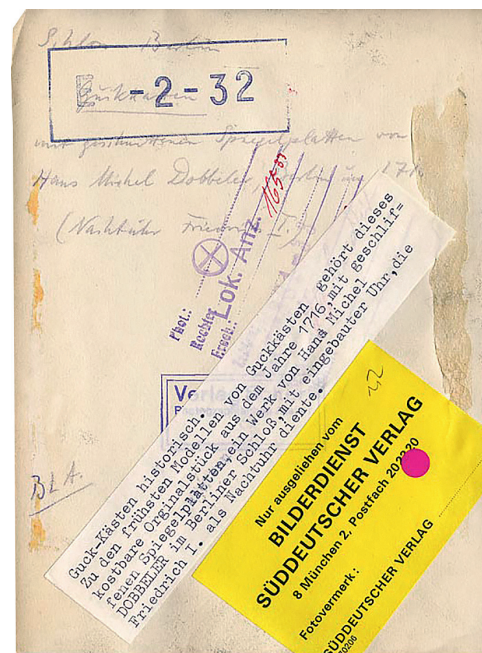 Schloss Berlin
E -2-32
Guckkasten
mit geschnittenen Spiegelplatten von
Hans Michel Dobbeler Berlin um 1716
(Nachtuhr Friedr. I.)
165
Phot.:
Rechte
Ersch.: Lok. Anz.
Verla
B L A.
Guck-Kästen historisch.
Zu den frühsten Modellen von Guckkästen gehört dieses
kostbare Orginalstück aus dem Jahre 1716, mit geschlif=
fenen Spiegelplatten, ein Werk von Hand Michel
DOBBELER im Berliner Schloß, mit eingebauter Uhr, die
Friedrich I. als Nachtuhr diente.
Nur ausgeliehen vom
BILDERDIENST
SÜDDEUTSCHER VERLAG
8 München 2, Postfach 20
20
Fotovermerk:
SÜDDEUTSCHER VERLAG
70206